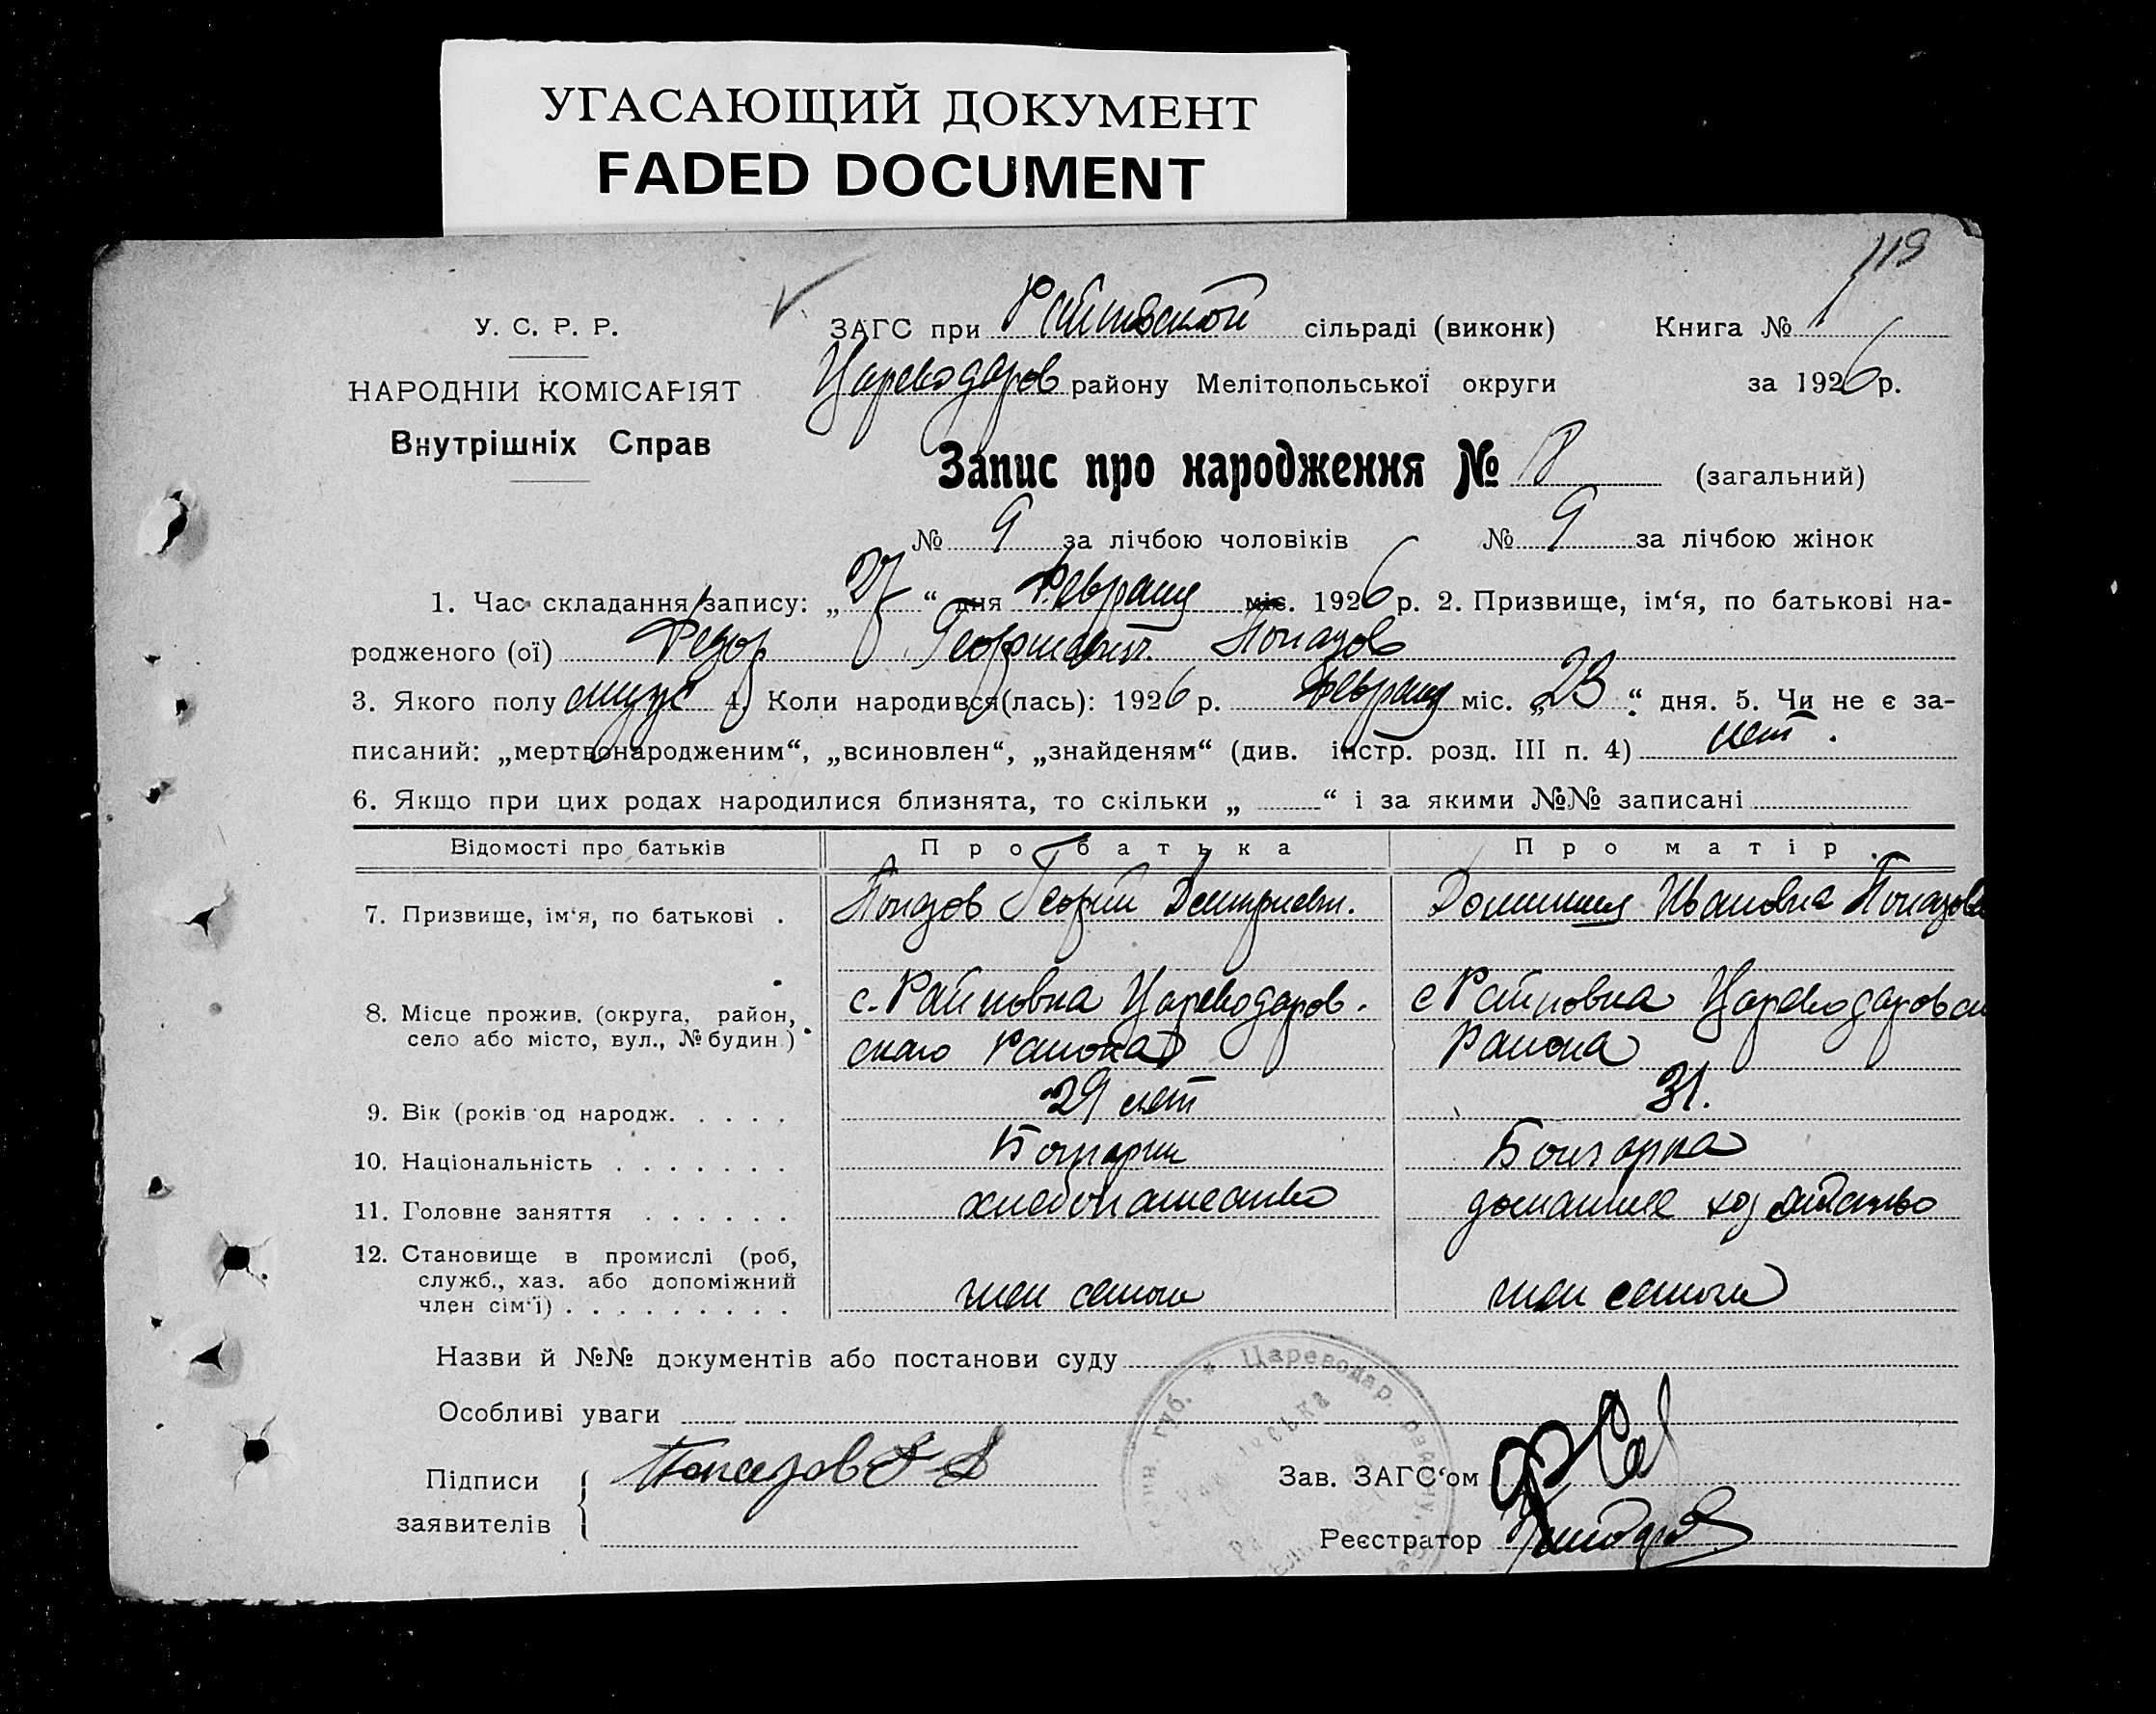 УГАСАЮЩИЙ ДОКУМЕНТ
FADED DOCUMENT
119
У. С. Р. Р.
НАРОДНІЙ КОМІСАРІЯТ
Внутрішніх Справ
ЗАГС при Райновской сільраді (виконк) Книга №
Цареводаров району Мелітопольської округи за 1926 р.
Запис про народження № (загальний)
№ 9 за лічбою чоловіків № 9 за лічбою жінок
1. Час складання запису: „27“ дня Февраля міс. 1926 р. 2. Призвище, ім‘я, по батькові на-
родженого (ої) Федор Георгиевич
3. Якого полу мужс 4. Коли народився(лась): 1926 р. Февраля міс. „23“ дня. 5. Чи не є за-
писаний: „мертвонародженим“, „всиновлен“, „знайденям“ (див. інстр. розд. III п. 4) нет.
6. Якщо при цих родах народилися близнята, то скільки „ “ і за якими №№ записані
Відомості про батьків Про батька Про матір.
7. Призвище, ім‘я, по батькові . Георгий Дмитриевич. Ивановна
8. Місце прожив. (округа, район, село або місто, вул., № будин.) с. Райновка Цареводаров. с Райновка
ского района района
9. Вік (років од народж. . . . . 29 лет 31.
10. Національність . . . . . . . Болгарин Болгарка
11. Головне заняття . . . . . . хлебопашество домашнее хозяйство
12. Становище в промислі (роб, служб., хаз. або допоміжний член сім‘ї) . . . . . . . . . член семьи член семьи
Назви й №№ документів або постанови суду
Особливі уваги
Підписи
заявителів
Зав. ЗАГС‘ом
Реєстратор
губ. * Цареводар. району